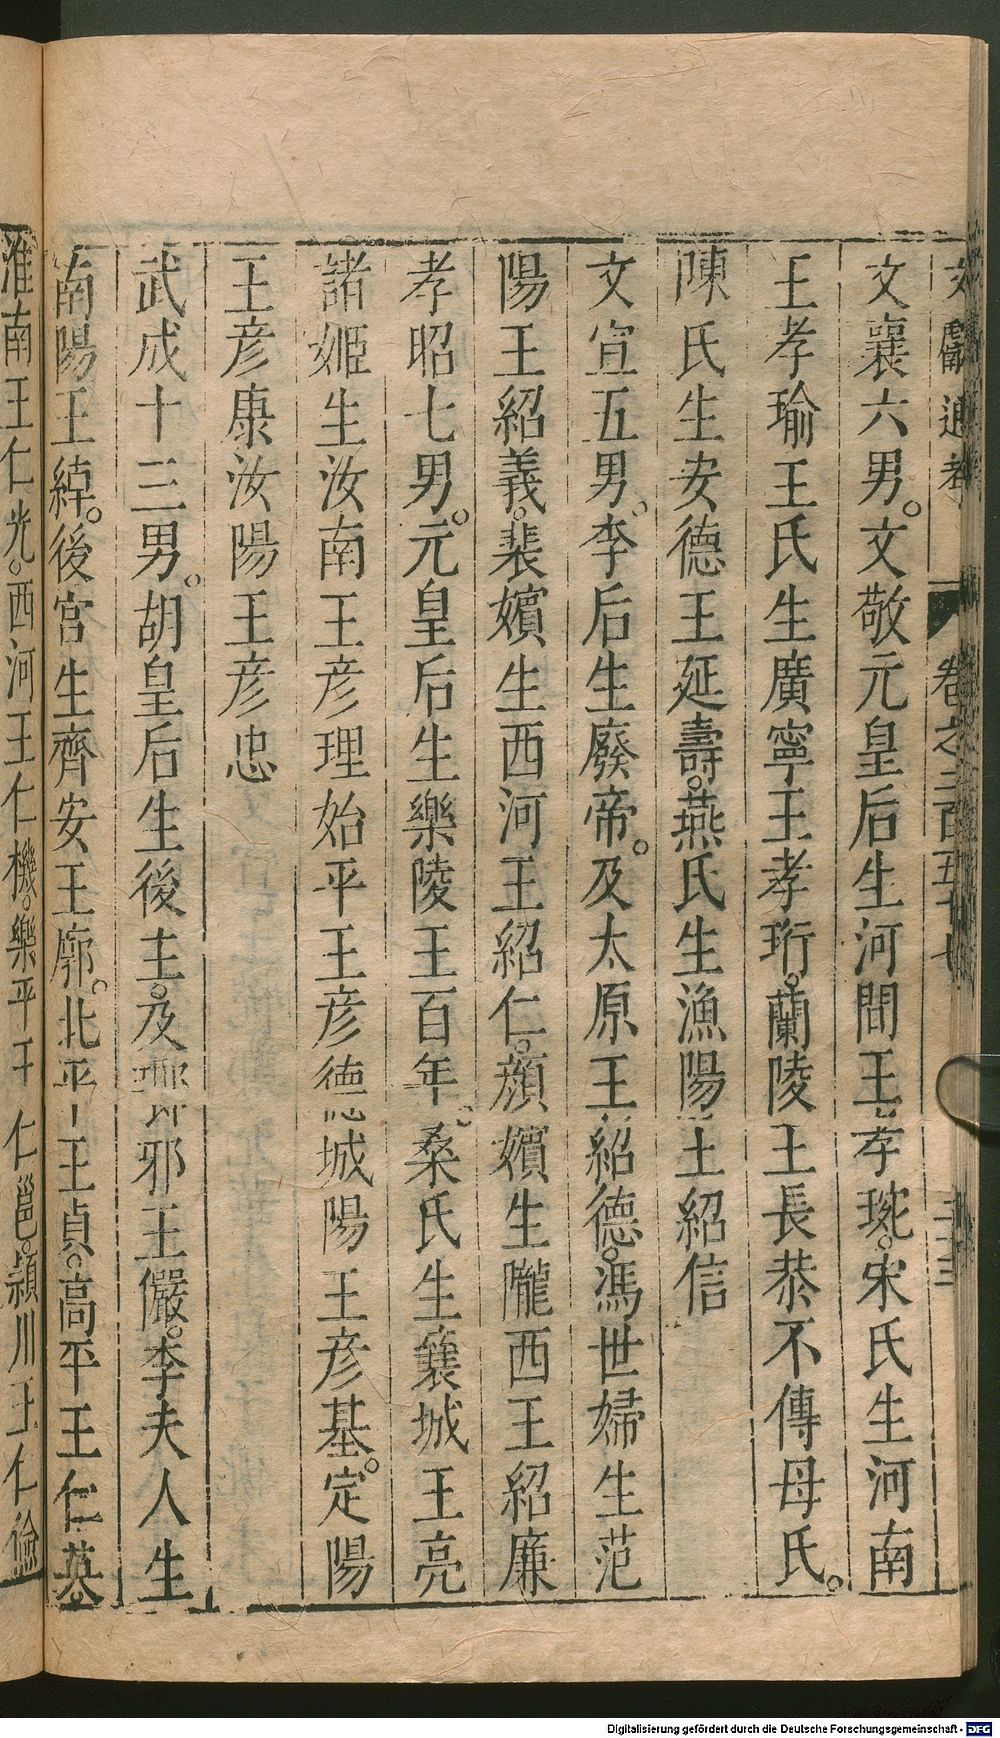 文獻通考 卷之二百五十七 三十三
文襄六男。文敬元皇后生河間王孝琬。宋氏生河南
王孝瑜王氏生廣寧王孝珩。蘭陵王長恭不傳母氏。
陳氏生安德王延壽。燕氏生漁陽王紹信
文宣五男。李后生廢帝。及太原王紹德。馮世婦生范
陽王紹義。裴嬪生西河王紹仁。顏嬪生隴西王紹廉
孝昭七男。元皇后生樂陵王百年。桑氏生襄城王亮
諸姬生汝南王彦理始平王彦德城陽王彦基。定陽
王彦康汝陽王彦忠
武成十三男。胡皇后生後主。及琅邪王儼。李夫人生
南陽王綽。後宮生齊安王廓。北平王貞。高平王仁英
淮南王仁光。西河王仁機。樂平王仁邕。潁川王仁儉
Digitalisierung gefördert durch die Deutsche Forschungsgemeinschaft - DFG